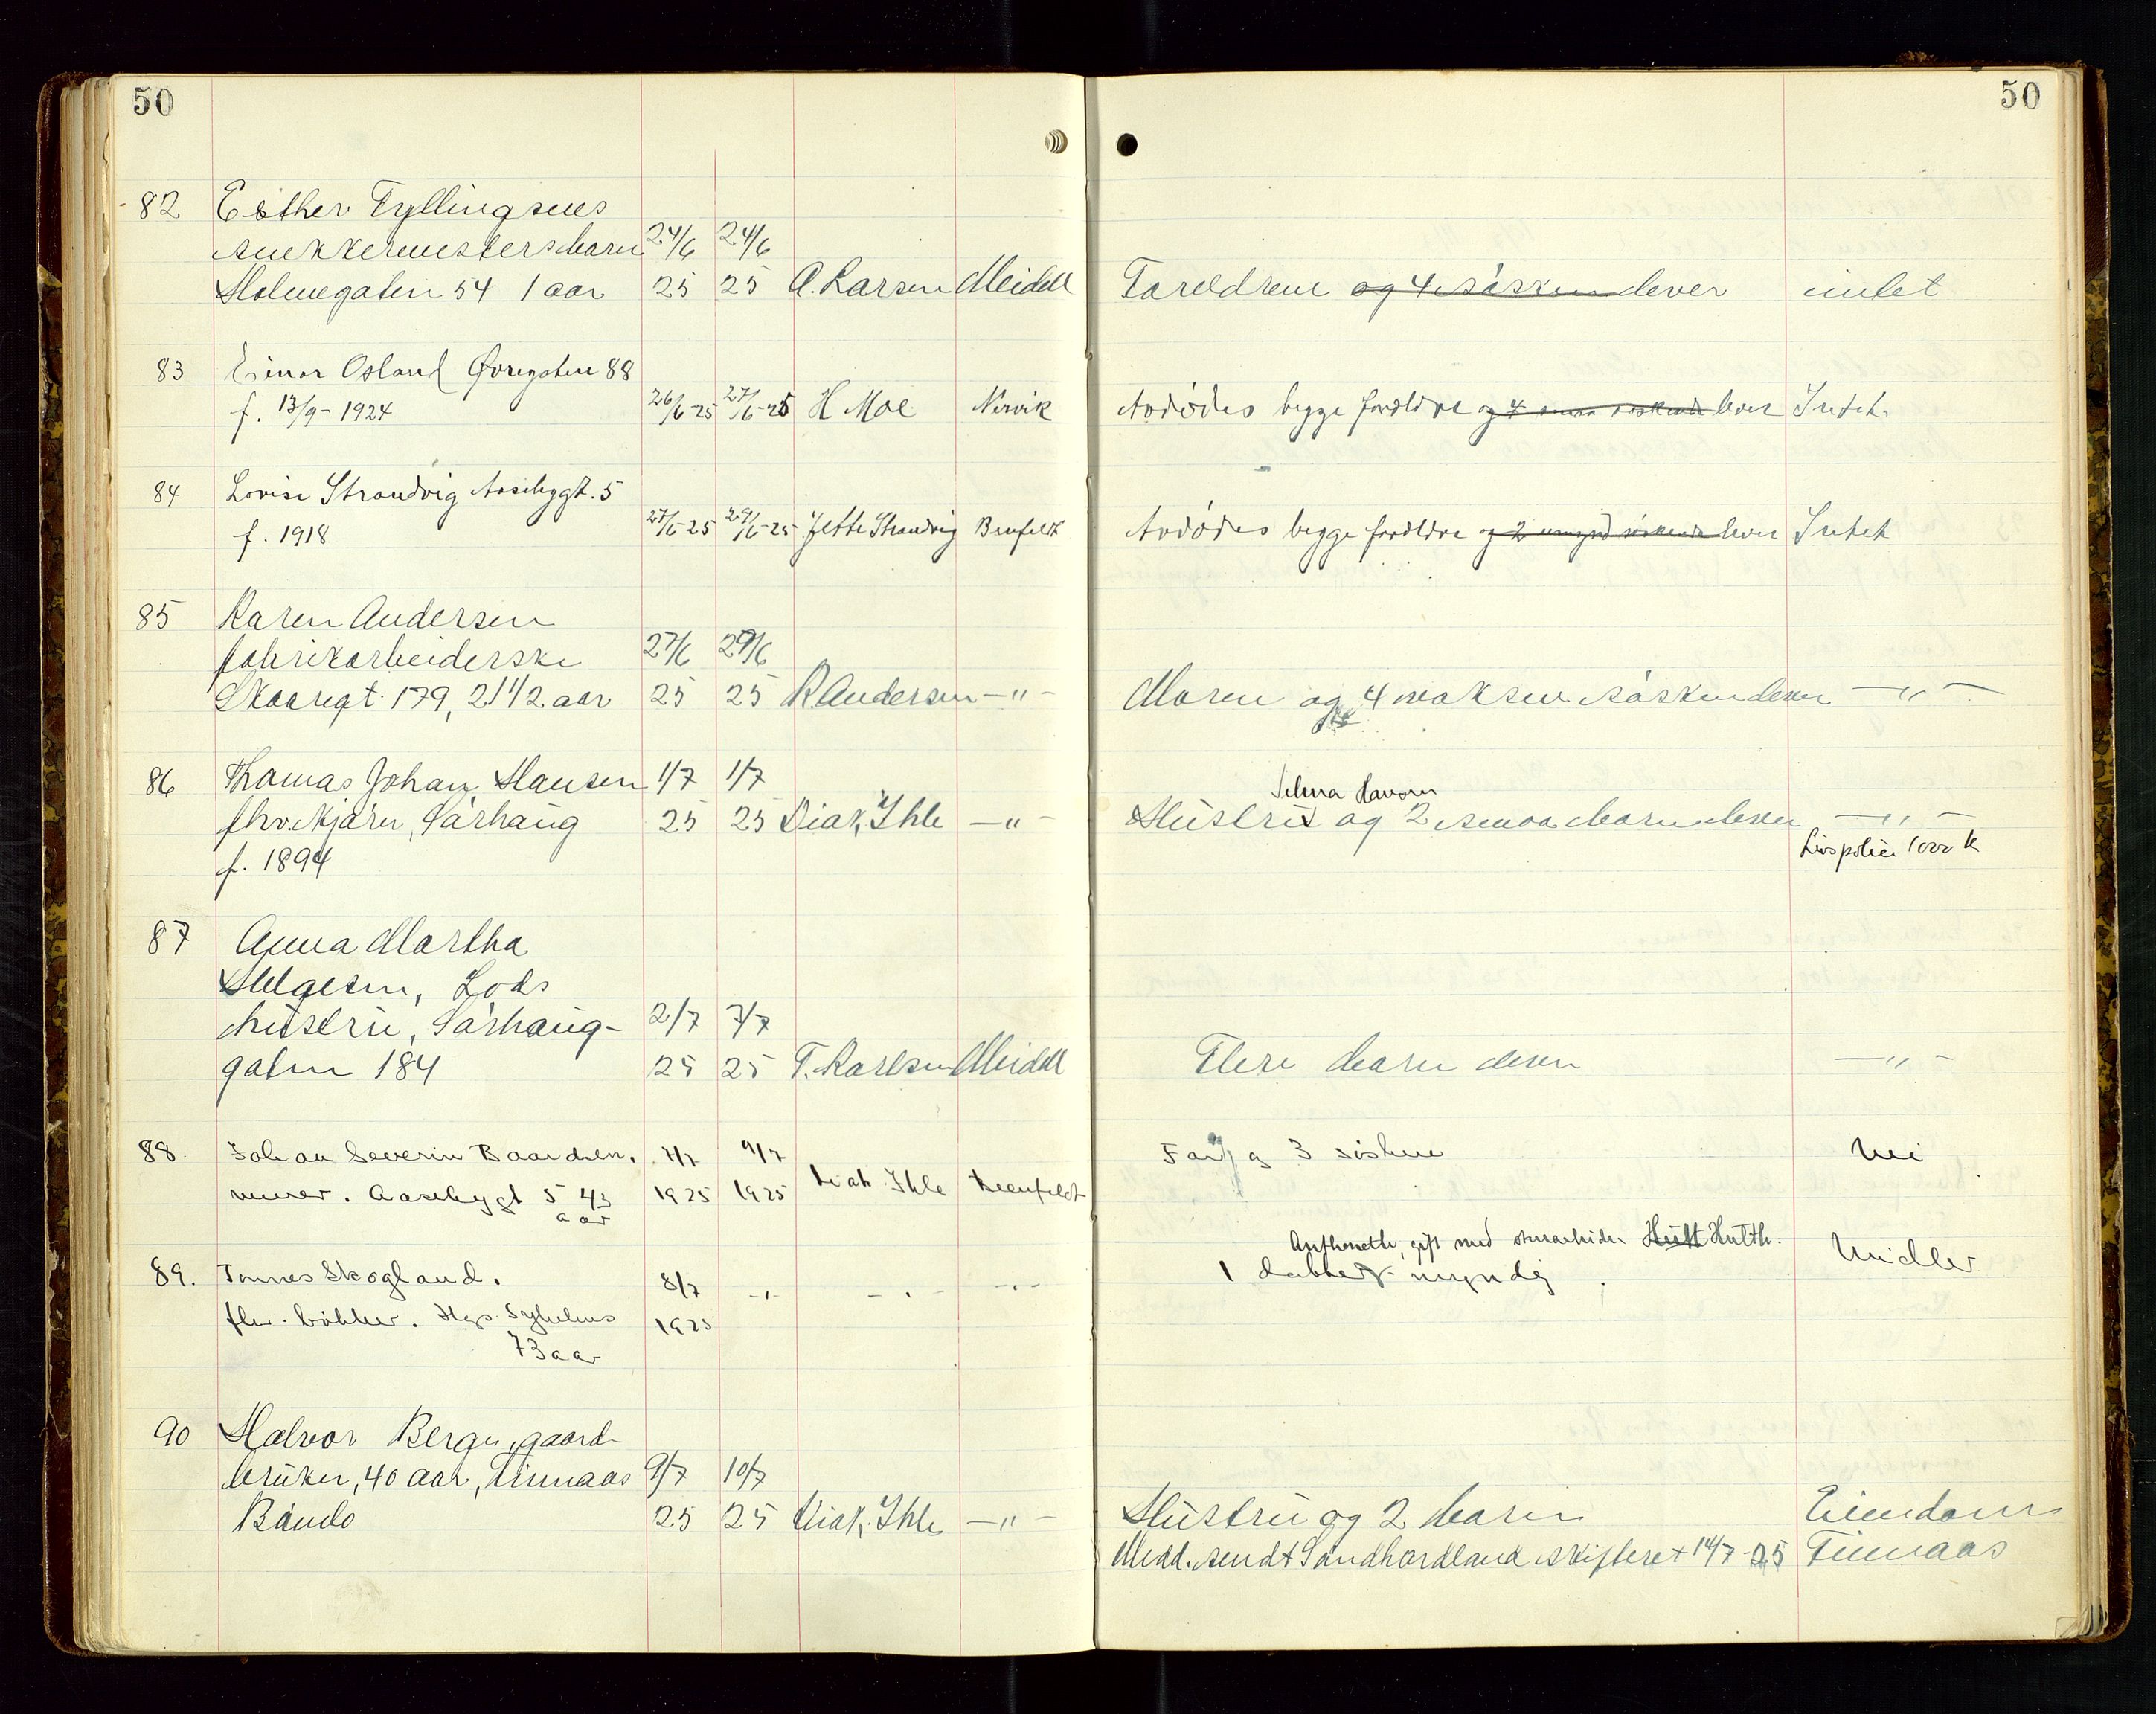 50
50
82 Esther Tyllingsnes
snekkermesters barn 24/6 24/6
Holmegaten 54 1 aar 25 25 A. Larsen Meidell Foreldrene og 4 søsken lever intet
83 Einar Osland Øvregaten 88
f. 13/9-1924 26/6-25 27/6-25 H Moe Nervik Avdødes begge foreldre og 4 smaa søskende lever Intet.
84 Lovise Strandvig Aasebygt. 5
f. 1918 27/6-25 29/6-25 Jette Strandvig Benfeldt Avdødes begge foreldre og 2 umynd søskende lever Intet
85 Karen Andersen
fabrikarbeiderske 27/6 29/6
Skaaregt. 179, 21 1/2 aar 25 25 R. Andersen —"— Moren og 4 voksne søsken lever —"—
86 Thomas Johan Hansen 1/7 1/7 Selma Hansen
fhv. skjører, Sørhaug 25 25 Diak. Ihle —"— Hustru og 2 smaa barn lever —"—
f. 1894 Livspolice 1000 kr
87 Anna Martha
Helgesen, Lods
hustru, Sørhaug- 2/7 7/7
gaten 184 25 25 T. Karlsen Meidell Flere barn lever —"—
88. Johan Severin Baardsen, 7/7 9/7 Far og 3 søstre Nei
murer. Aasebygt 5 43 1925 1925 Diak. Ihle Benfeldt
aar
Anthonette, gift med Hutt Hulth.
89. Tønnes Skogland. 8/7 —"— —"— —"— 1 datter myndig Midler
fhv. bøkker. Hgs. Sykehus 1925
73 aar
90 Halvor Berge, gaard-
bruker, 40 aar, Finnaas 9/7 10/7
Bømlo 25 25 Diak. Ihle —"— Hustru og 2 barn Eiendom
Medd. sendt Søndhordland skifteret 14/7-25 Finnaas